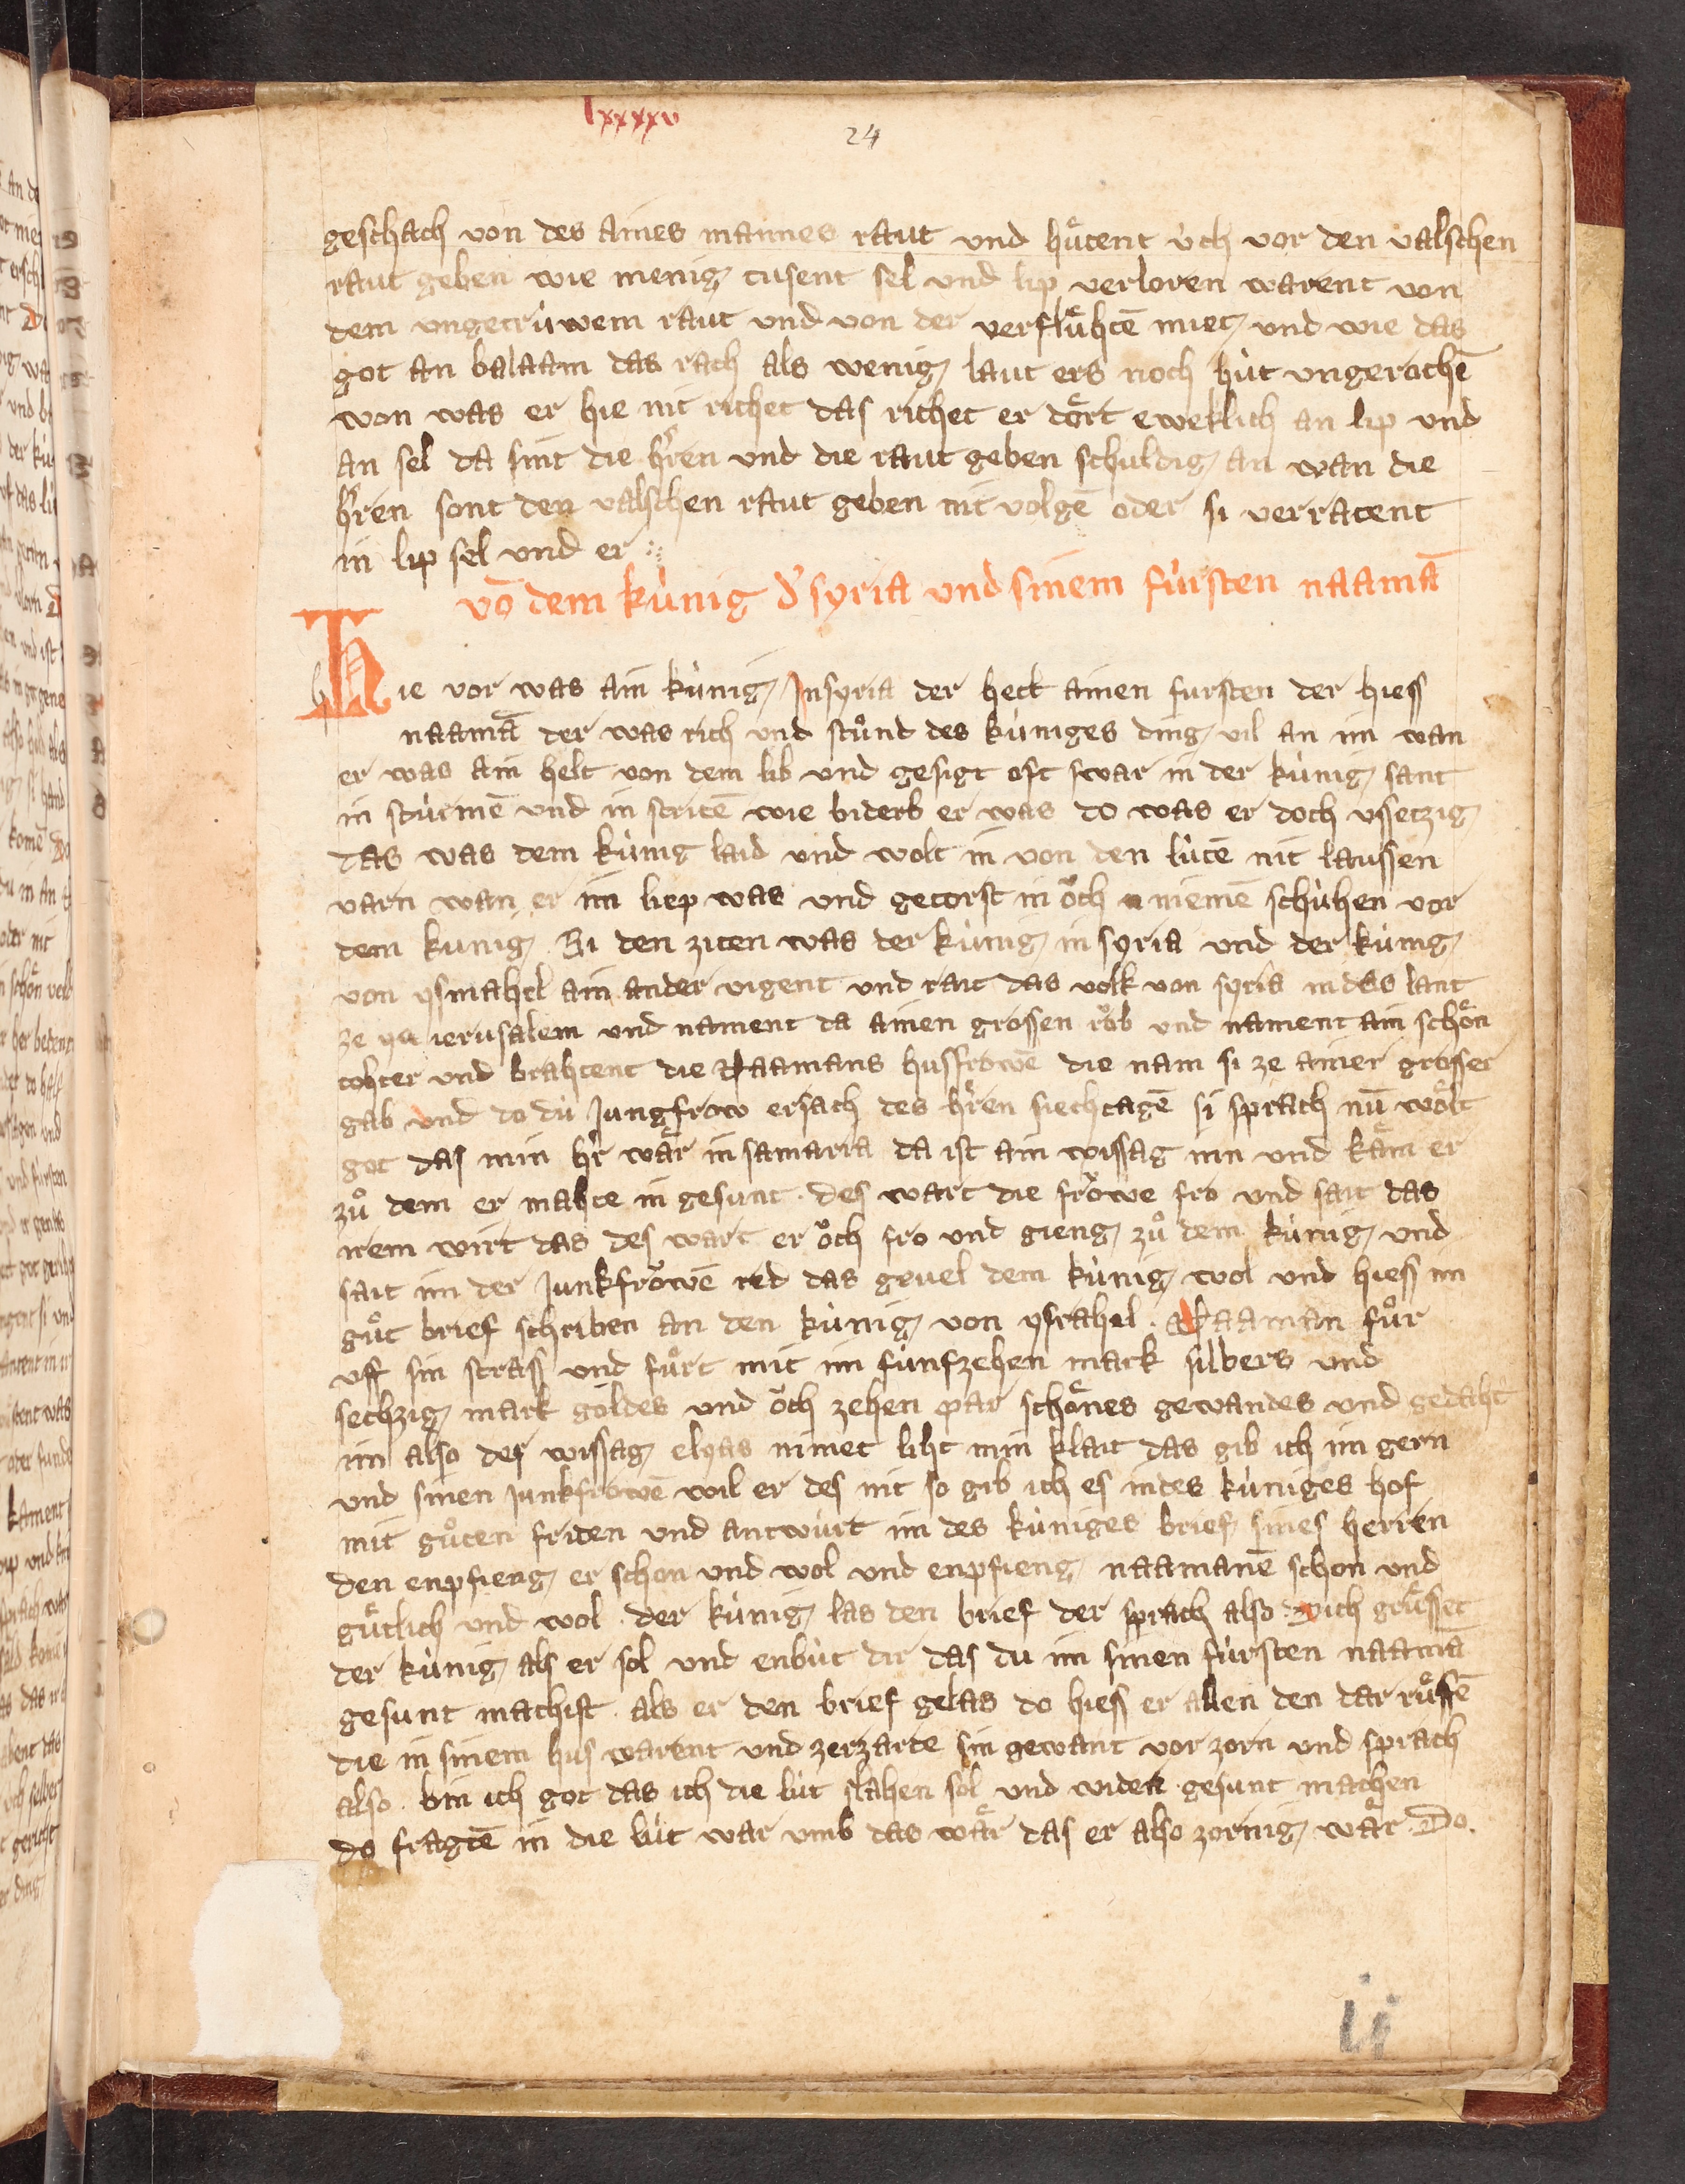 lxxxxv
24
geschach von des aines mannes raut und huͤtent u̇ch vor den valschen
raut geben wie menig tusent sel und lip verloren warent von
dem ungetru̇wem raut und von der verfluͤhtē miet und wie das
got an balaam das rach als wenig laut ers noch hu̇t ungerochē
won was er hie nit richet das richet er doͤrt eweklich an lip und
an sel da sint die h̓ren und die raut geben schuldig an wan die
h̓ren sont den valschen raut geben nit volgē oder si verratent
in lip sel und er
vō dem ku̇nig d̓ syria und sinem fu̇rsten naamā
Hie vor was ain ku̇nig In syria der hett ainen fursten der hiess
naamā der was rich und stuͦnd des ku̇niges ding vil an im wan
er was ain helt von dem lib und gesigt oft swar in der ku̇nig sant
in stu̇rmē und in stritē wie biderb er was do was er doch ussetzig
das was dem ku̇nig laid und wolt in von den lu̇tē nit laussen
varn wan er im liep was und getorst in oͮch niemē schu̇hen vor
dem kunig Bi den ziten was der ku̇nig in syria und der ku̇nig
von ysrahel ain ander vigent und rait das volk von syria in das lant
ze ierusalem und nament da ainen grossen roͮb und nament ain schoͤn
tohter und brahtent die Naamans husfrowē die nam si ze ainer grosser
gab und do du̇ Jungfrow ersach des h̓ren siechtagē si sprach nū woͤlt
got das min h̓r waͤr in samaria da ist ain wissag inn und kaͤm er
zuͦ dem er mahte in gesunt des wart die froͮwe fro und sait das
irem wirt das des wart er oͮch fro und gieng zuͦ dem ku̇nig und
sait im der Junkfroͮwē red das geuel dem ku̇nig wol und hiess im
guͦt brief schriben an den ku̇nig von ysrahel Naaman fuͦr
uff sin strass und fuͦrt mit im fu̇nfzehen mark silbers und
sechzig mark goldes und oͮch zehen par schoͤnes gewandes und gedaht
im also der wissag elyas nimet liht min klait das gib ich im gern
und sinen Junkfrowē wil er des nit so gib ich es in des ku̇niges hof
mit guͦten friden und antwu̇rt im des ku̇niges brief sines herren
den enpfieng er schon und wol und enpfieng naamanē schon und
guͤtlich und wol der ku̇nig las den brief der sprach also dich gruͤsset
der ku̇nig als er sol und enbu̇t dir das du im sinen fu̇rsten naamā
gesunt machist als er den brief gelas do hiess er allen den dar ruͤffē
die in sinem hus warent und zerzarte sin gewant vor zorn und sprach
also bin ich got das ich die lu̇t slahen sol und wider gesunt machen
do fragtē in die lu̇t war umb das waͤr das er also zornig waͤr Do